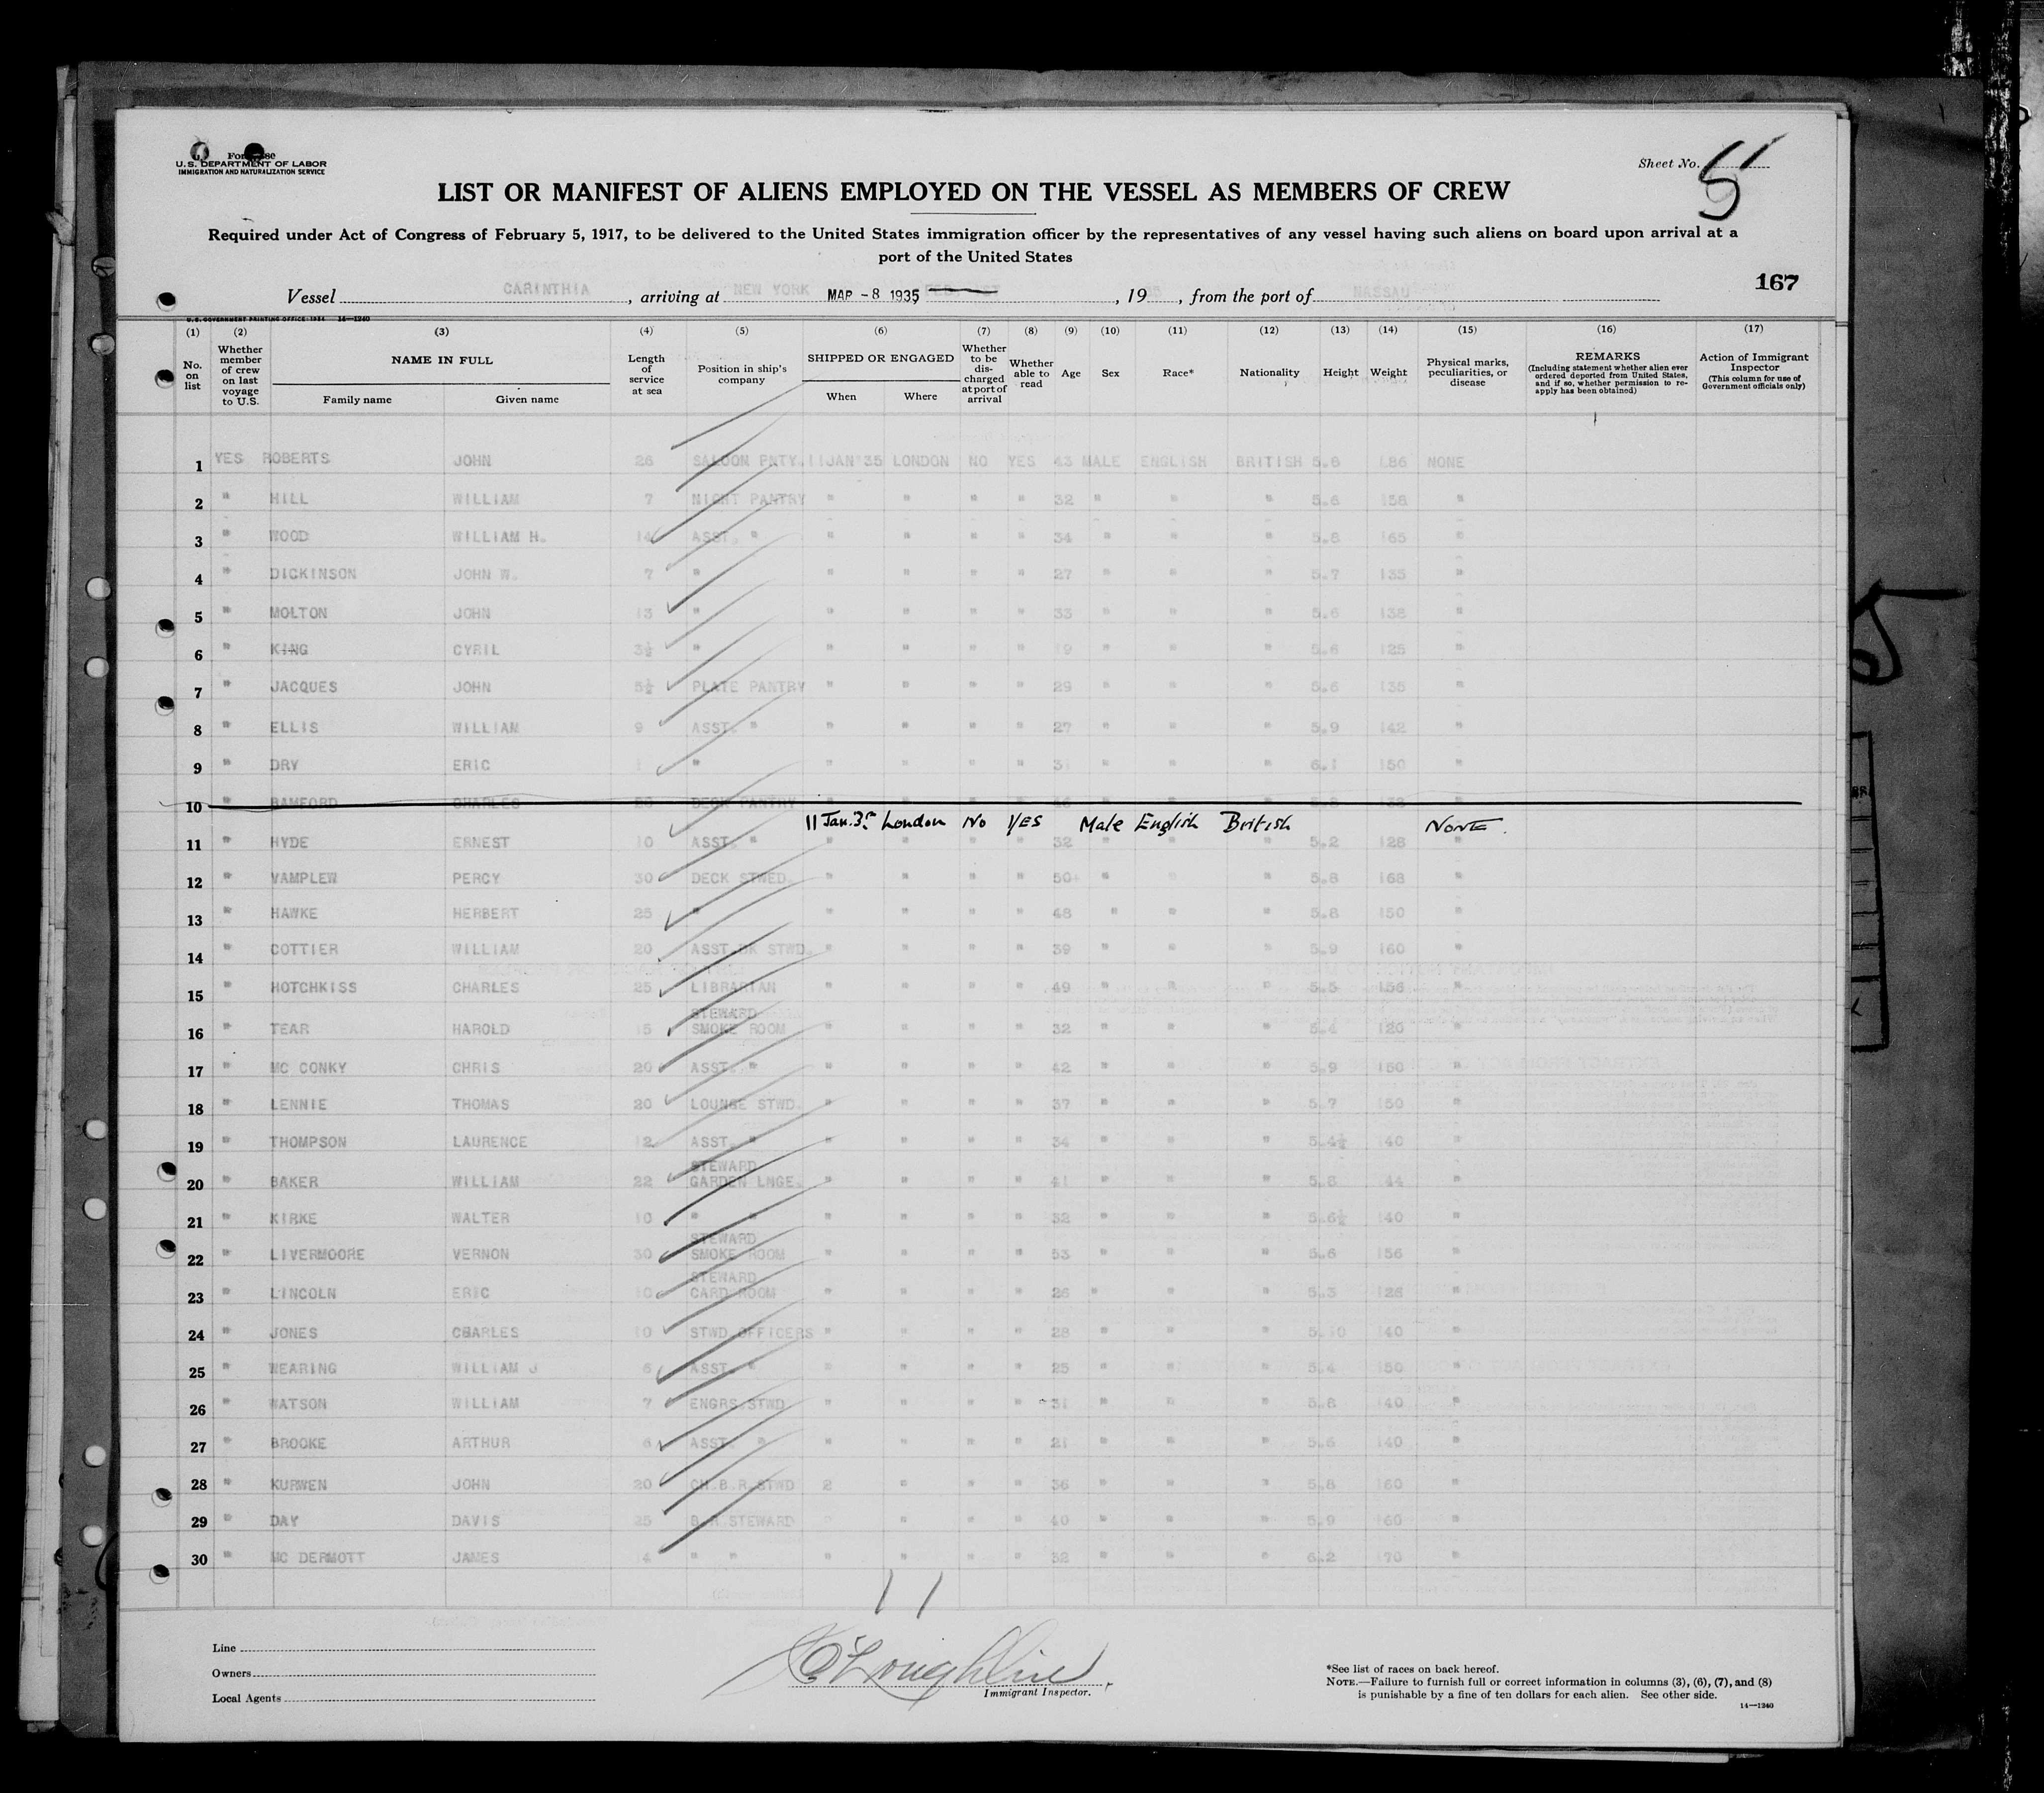 Form 680
U. S. DEPARTMENT OF LABOR
IMMIGRATION AND NATURALIZATION SERVICE
Sheet No. 5
LIST OR MANIFEST OF ALIENS EMPLOYED ON THE VESSEL AS MEMBERS OF CREW
Required under Act of Congress of February 5, 1917, to be delivered to the United States immigration officer by the representatives of any vessel having such aliens on board upon arrival at a
port of the United States
167
Vessel CARINTHIA, arriving at NEW YORK MAR -8 1935, 19 35, from the port of NASSAU
U. S. GOVERNMENT PRINTING OFFICE: 1934 14—1240
(1) (2) (3) (4) (5) (6) (7) (8) (9) (10) (11) (12) (13) (14) (15) (16) (17)
No. on list | Whether member of crew on last voyage to U.S. | NAME IN FULL Family name Given name | Length of service at sea | Position in ship's company | SHIPPED OR ENGAGED When Where | Whether to be discharged at port of arrival | Whether able to read | Age | Sex | Race* | Nationality | Height | Weight | Physical marks, peculiarities, or disease | REMARKS (Including statement whether alien ever ordered deported from United States, and if so, whether permission to reapply has been obtained) | Action of Immigrant Inspector (This column for use of Government officials only)
1 YES ROBERTS JOHN 26 SALOON PNTY. 11JAN'35 LONDON NO YES 43 MALE ENGLISH BRITISH 5.6 186 NONE
2 " HILL WILLIAM 7 NIGHT PANTRY " " " " 32 " " " 5.6 138 "
3 " WOOD WILLIAM H. 14 ASST. " " " " " 34 " " " 5.8 165 "
4 " DICKINSON JOHN W. 7 " " " " " 27 " " " 5.7 135 "
5 " MOLTON JOHN 13 " " " " " 33 " " " 5.6 138 "
6 " KING CYRIL 3½ " " " " " 19 " " " 5.6 125 "
7 " JACQUES JOHN 5½ PLATE PANTRY " " " " 29 " " " 5.6 135 "
8 " ELLIS WILLIAM 9 ASST. " " " " " 27 " " " 5.9 142 "
9 " DRY ERIC 1 " " " " " 31 " " " 6.1 150 "
10 " BAMFORD CHARLES DECK PANTRY
11 Jan. 35 London No YES Male English British NONE.
11 " HYDE ERNEST 10 ASST. " " " " " 32 " " " 5.2 128 "
12 " VAMPLEW PERCY 30 DECK STWED. " " " " 50 " " " 5.8 168 "
13 " HAWKE HERBERT 25 " " " " " 48 " " " 5.8 150 "
14 " COTTIER WILLIAM 20 ASST DK STWD. " " " " 39 " " " 5.9 160 "
15 " HOTCHKISS CHARLES 25 LIBRARIAN " " " " 49 " " " 5.5 156 "
16 " TEAR HAROLD 15 STEWARD SMOKE ROOM " " " " 32 " " " 5.4 120 "
17 " MC CONKY CHRIS 20 ASST. " " " " " 42 " " " 5.9 150 "
18 " LENNIE THOMAS 20 LOUNGE STWD. " " " " 37 " " " 5.7 150 "
19 " THOMPSON LAURENCE 12 ASST. " " " " " 34 " " " 5.4½ 140 "
20 " BAKER WILLIAM 22 STEWARD GARDEN LNGE. " " " " 41 " " " 5.8 144 "
21 " KIRKE WALTER 10 " " " " " " 32 " " " 5.6½ 140 "
22 " LIVERMOORE VERNON 30 STEWARD SMOKE ROOM " " " " 53 " " " 5.6 156 "
23 " LINCOLN ERIC 10 STEWARD CARD ROOM " " " " 26 " " " 5.3 126 "
24 " JONES CHARLES 10 STWD OFFICERS " " " " 28 " " " 5.10 140 "
25 " WEARING WILLIAM J 6 ASST. " " " " " 25 " " " 5.4 150 "
26 " WATSON WILLIAM 7 ENGRS.STWD " " " " 31 " " " 5.8 140 "
27 " BROOKE ARTHUR 6 ASST. " " " " " 21 " " " 5.6 140 "
28 " KURWEN JOHN 20 CH.B.R.STWD 2 " " " 36 " " " 5.8 160 "
29 " DAY DAVIS 25 B.R.STEWARD " " " " 40 " " " 5.9 160 "
30 " MC DERMOTT JAMES 4 " " " " " " 32 " " " 6.2 170 "
11
Line
Owners
Local Agents
O'Loughlin
Immigrant Inspector.
*See list of races on back hereof.
NOTE.—Failure to furnish full or correct information in columns (3), (6), (7), and (8)
is punishable by a fine of ten dollars for each alien. See other side.
14—1240